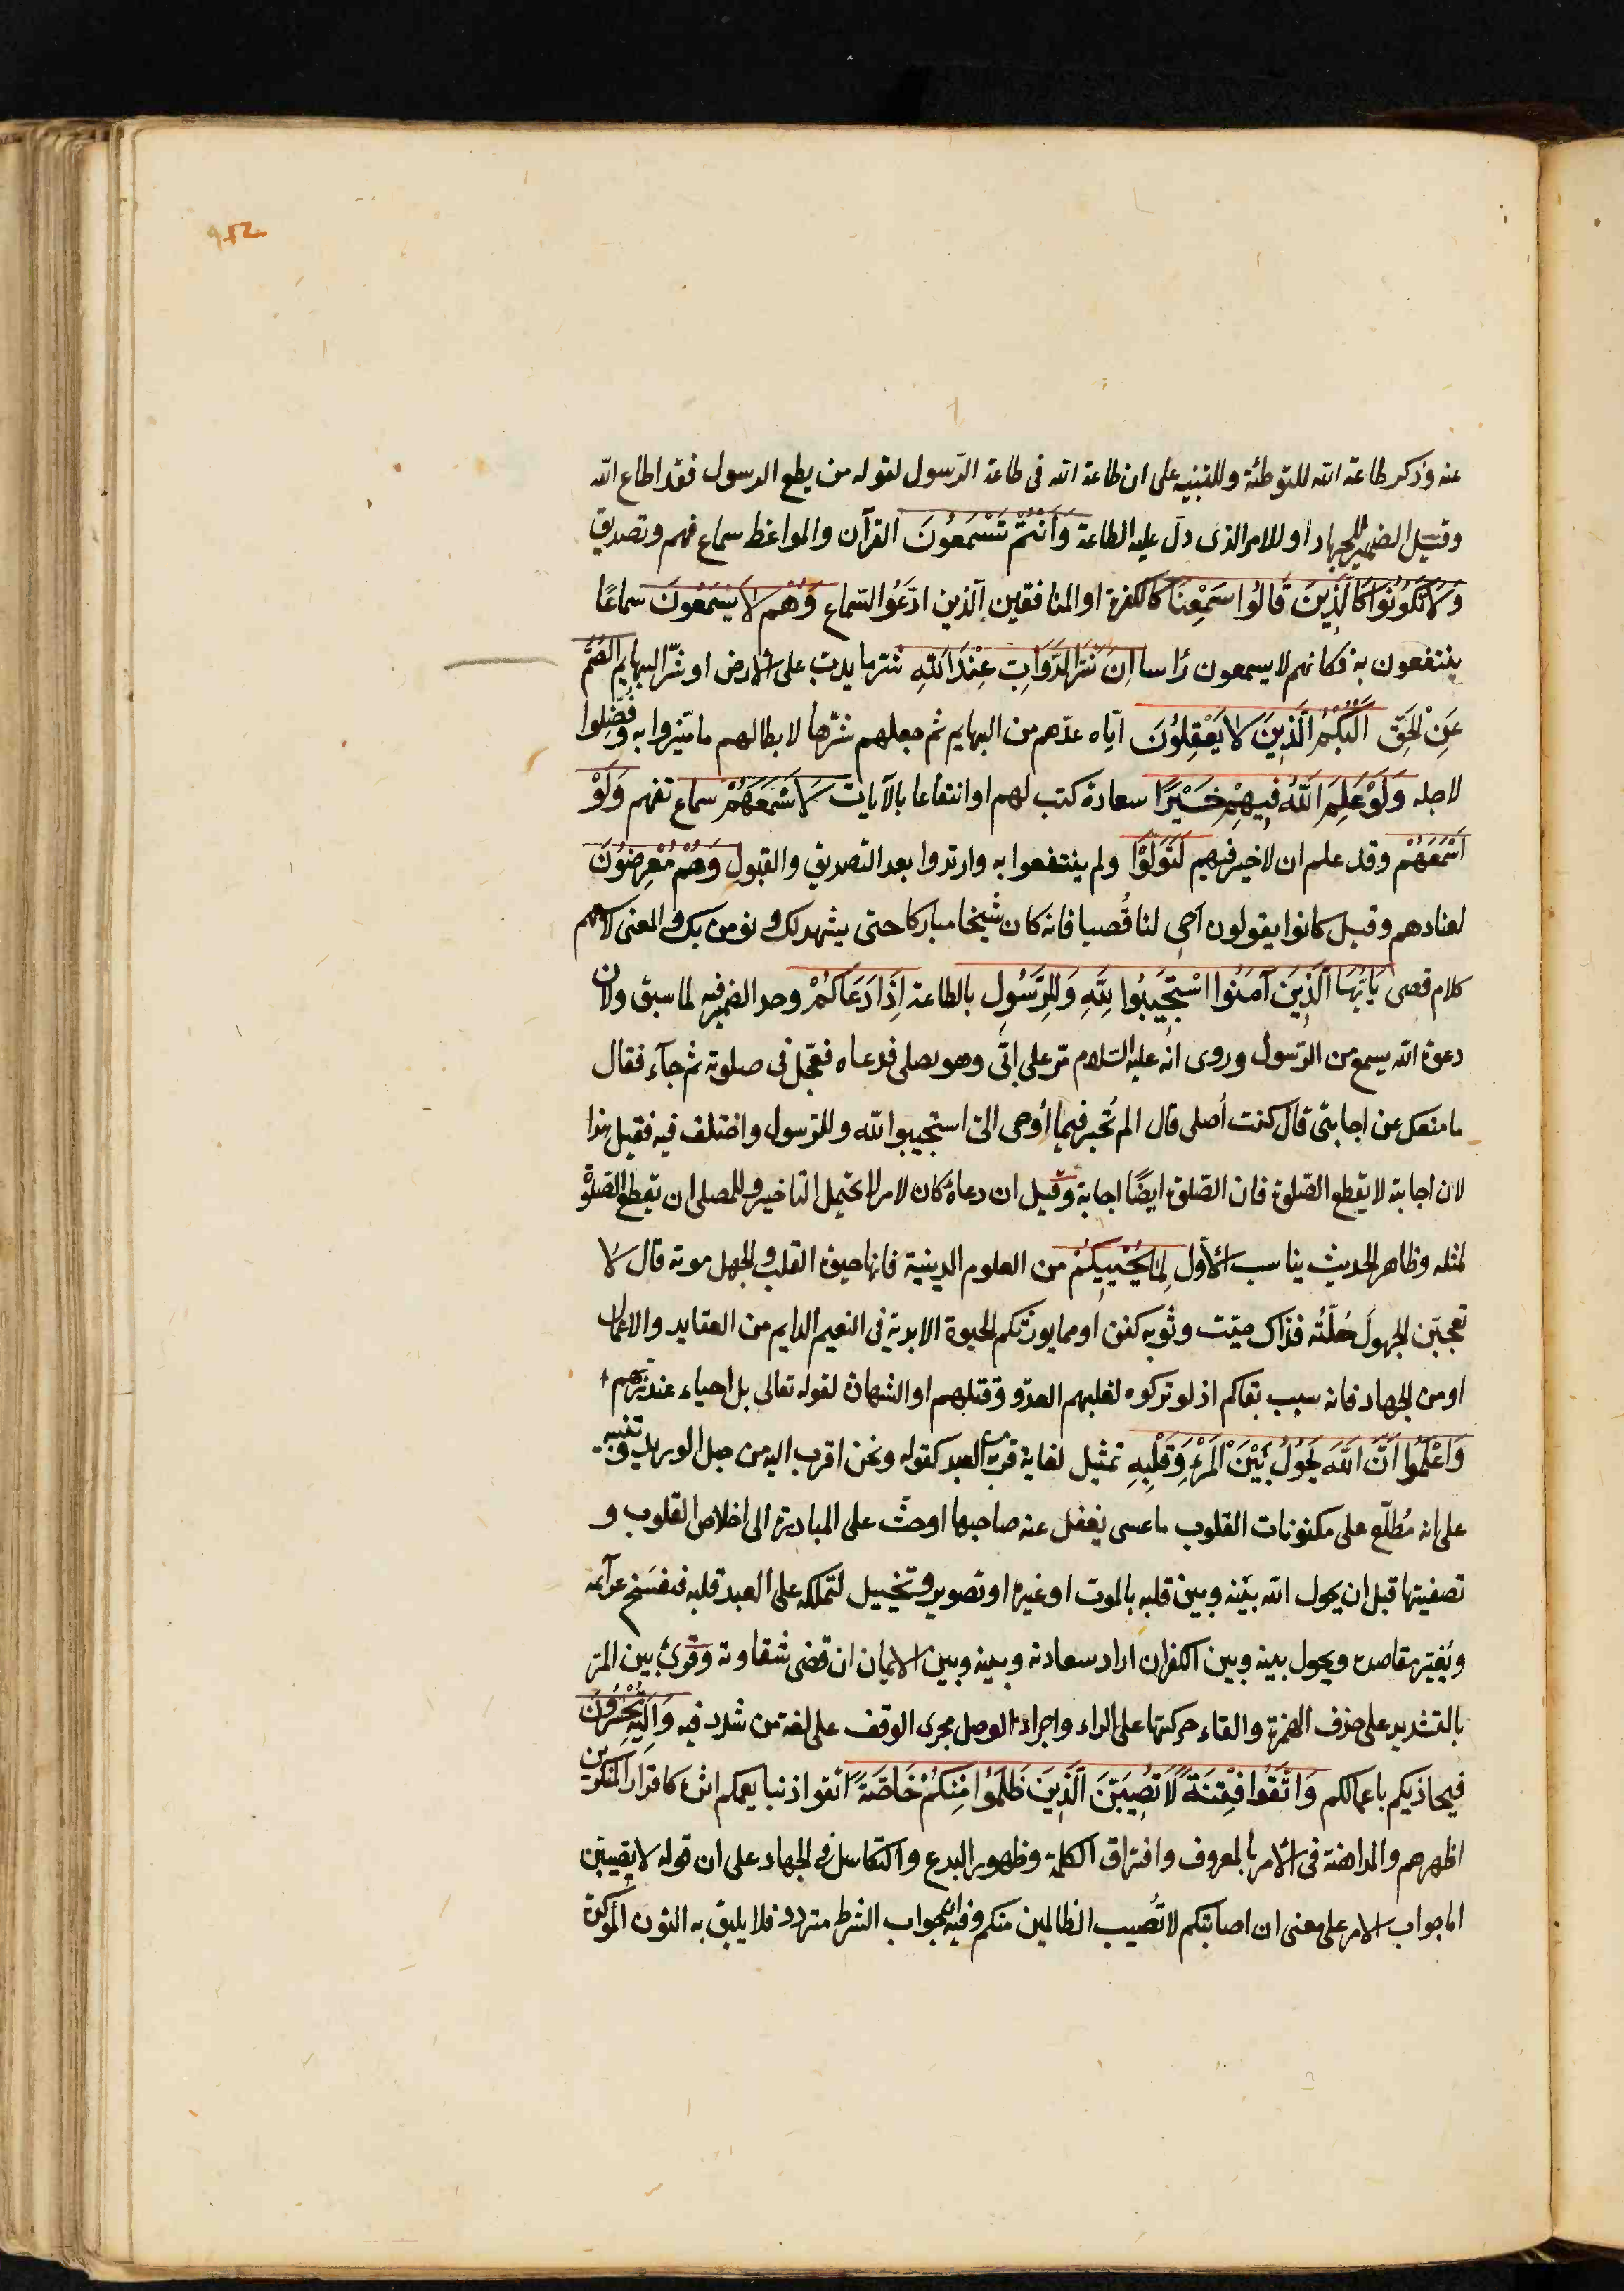 عنه وذكر طاعة الله للتوطئة وللتنبيه على ان طاعة الله فى طاعة الرّسول لقوله من يطع الرسول فقد اطاع الله
وقيل الضمير للجهاد او للامر الذى دلّ عليه الطاعة وَاَنْتُمْ تَسْمَعُونَ القرآن والمواعظ سماع فهم وتصديق
وَلَا تَكُونُوا كَالَّذِينَ قَالُوا سَمِعْنَا كالكفرة او المنافقين الّذين ادّعَوُا السّماع وَهُمْ لَا يَسْمَعُونَ سماعًا
ينتفعون به فكانهم لا يسمعون رأسا اِنَّ شَرَّ الدَّوَابِّ عِنْدَ اللّٰهِ شرّ ما يدبّ على الارض او شرّ البهايم الصُّمُّ
عَنِ الْحَقِّ اَلْبُكْمُ الَّذِينَ لَا يَعْقِلُونَ ايّاه عدّهم من البهايم ثم جعلهم شرّها لابطالهم ما ميّزوا به وفُضِّلوا
لاجله وَلَوْ عَلِمَ اللّٰهُ فِيهِمْ خَيْرًا سعادة كتب لهم او انتفاعا بالآيات لَاَسْمَعَهُمْ سماع تفهم وَلَوْ
اَسْمَعَهُمْ وقد علم ان لا خير فيهم لَتَوَلَّوْا ولم ينتفعوا به وارتدوا بعد التصديق والقبول وَهُمْ مُعْرِضُونَ
لعنادهم وقيل كانوا يقولون احى لنا قُصيا فانه كان شيخا مباركا حتى يشهد لك ونؤمن بك والمعنى لاسمعهم
كلام قصى يَا اَيُّهَا الَّذِينَ آمَنُوا اسْتَجِيبُوا لِلّٰهِ وَلِلرَّسُولِ بالطاعة اِذَا دَعَاكُمْ وحد الضمير فيه لما سبق ولان
دعوة الله يسمع من الرّسول وروى انّه عليه السّلام مرّ على اُبىّ وهو يصلى فدعاه فعجّل فى صلوته ثم جآء فقال
ما منعك عن اجابتى قال كنت اُصلى قال الم تُخبر فيما اُوحى الىّ استجيبوا لله وللرّسول واختلف فيه فقيل هذا
لان اجابته لا يقطع الصّلوة فان الصّلوة ايضًا اجابة وقيل ان دعاءه كان لامر لا يحتمل التاخير وللمصلى ان يقطع الصّلوة
لمثله وظاهر الحديث يناسب الاوّل لِمَا يُحْيِيكُمْ من العلوم الدينية فانها حيوة القلب والجهل موته قال لا
تعجبّن الجهولَ حُلّتُه فذاك ميّت وثوبه كفن او مما يورثكم الحيوة الابدية فى النعيم الدايم من العقايد والاعمال
او من الجهاد فانه سبب بقاكم اذ لو تركوه لغلبهم العدوّ وقتلهم او الشهادة لقوله تعالى بل احياء عند ربهم
وَاعْلَمُوا اَنَّ اللّٰهَ يَحُولُ بَيْنَ الْمَرْءِ وَقَلْبِهِ تمثيل لغاية قربه من العبد كقوله ونحن اقرب اليه من حبل الوريد وتنبيه
على انه مُطّلع على مكنونات القلوب ما عسى يغفل عنه صاحبها او حثّ على المبادرة الى اخلاص القلوب و
تصفيتها قبل ان يحول الله بينه وبين قلبه بالموت او غيره او تصوير وتخييل لتملكه على العبد قلبه فيفسخ عزآئمه
ويُغيّر مقاصده ويحول بينه وبين الكفر ان اراد سعادته وبينه وبين الايمان ان قضى شقاوته وقرئ بين المرّ
بالتشديد على حذف الهمزة والقاء حركتها على الراء واجراء الوصل مجرى الوقف على لغة من شدد فيه وَاِلَيْهِ تُحْشَرُونَ
فيجازيكم باعمالكم وَاتَّقُوا فِتْنَةً لَا تُصِيبَنَّ الَّذِينَ ظَلَمُوا مِنْكُمْ خَاصَّةً اتّقوا ذنبا يعمكم اثره كاقرار المنكر بين
اظهرهم والمداهنة فى الامر بالمعروف وافتراق الكلمة وظهور البدع والتكاسل فى الجهاد على ان قوله لا تصيبّن
اما جواب الامر على معنى ان اصابتكم لا تُصيب الظالمين منكم وفيه ان جواب الشرط متردد فلا يليق به النون المؤكدة